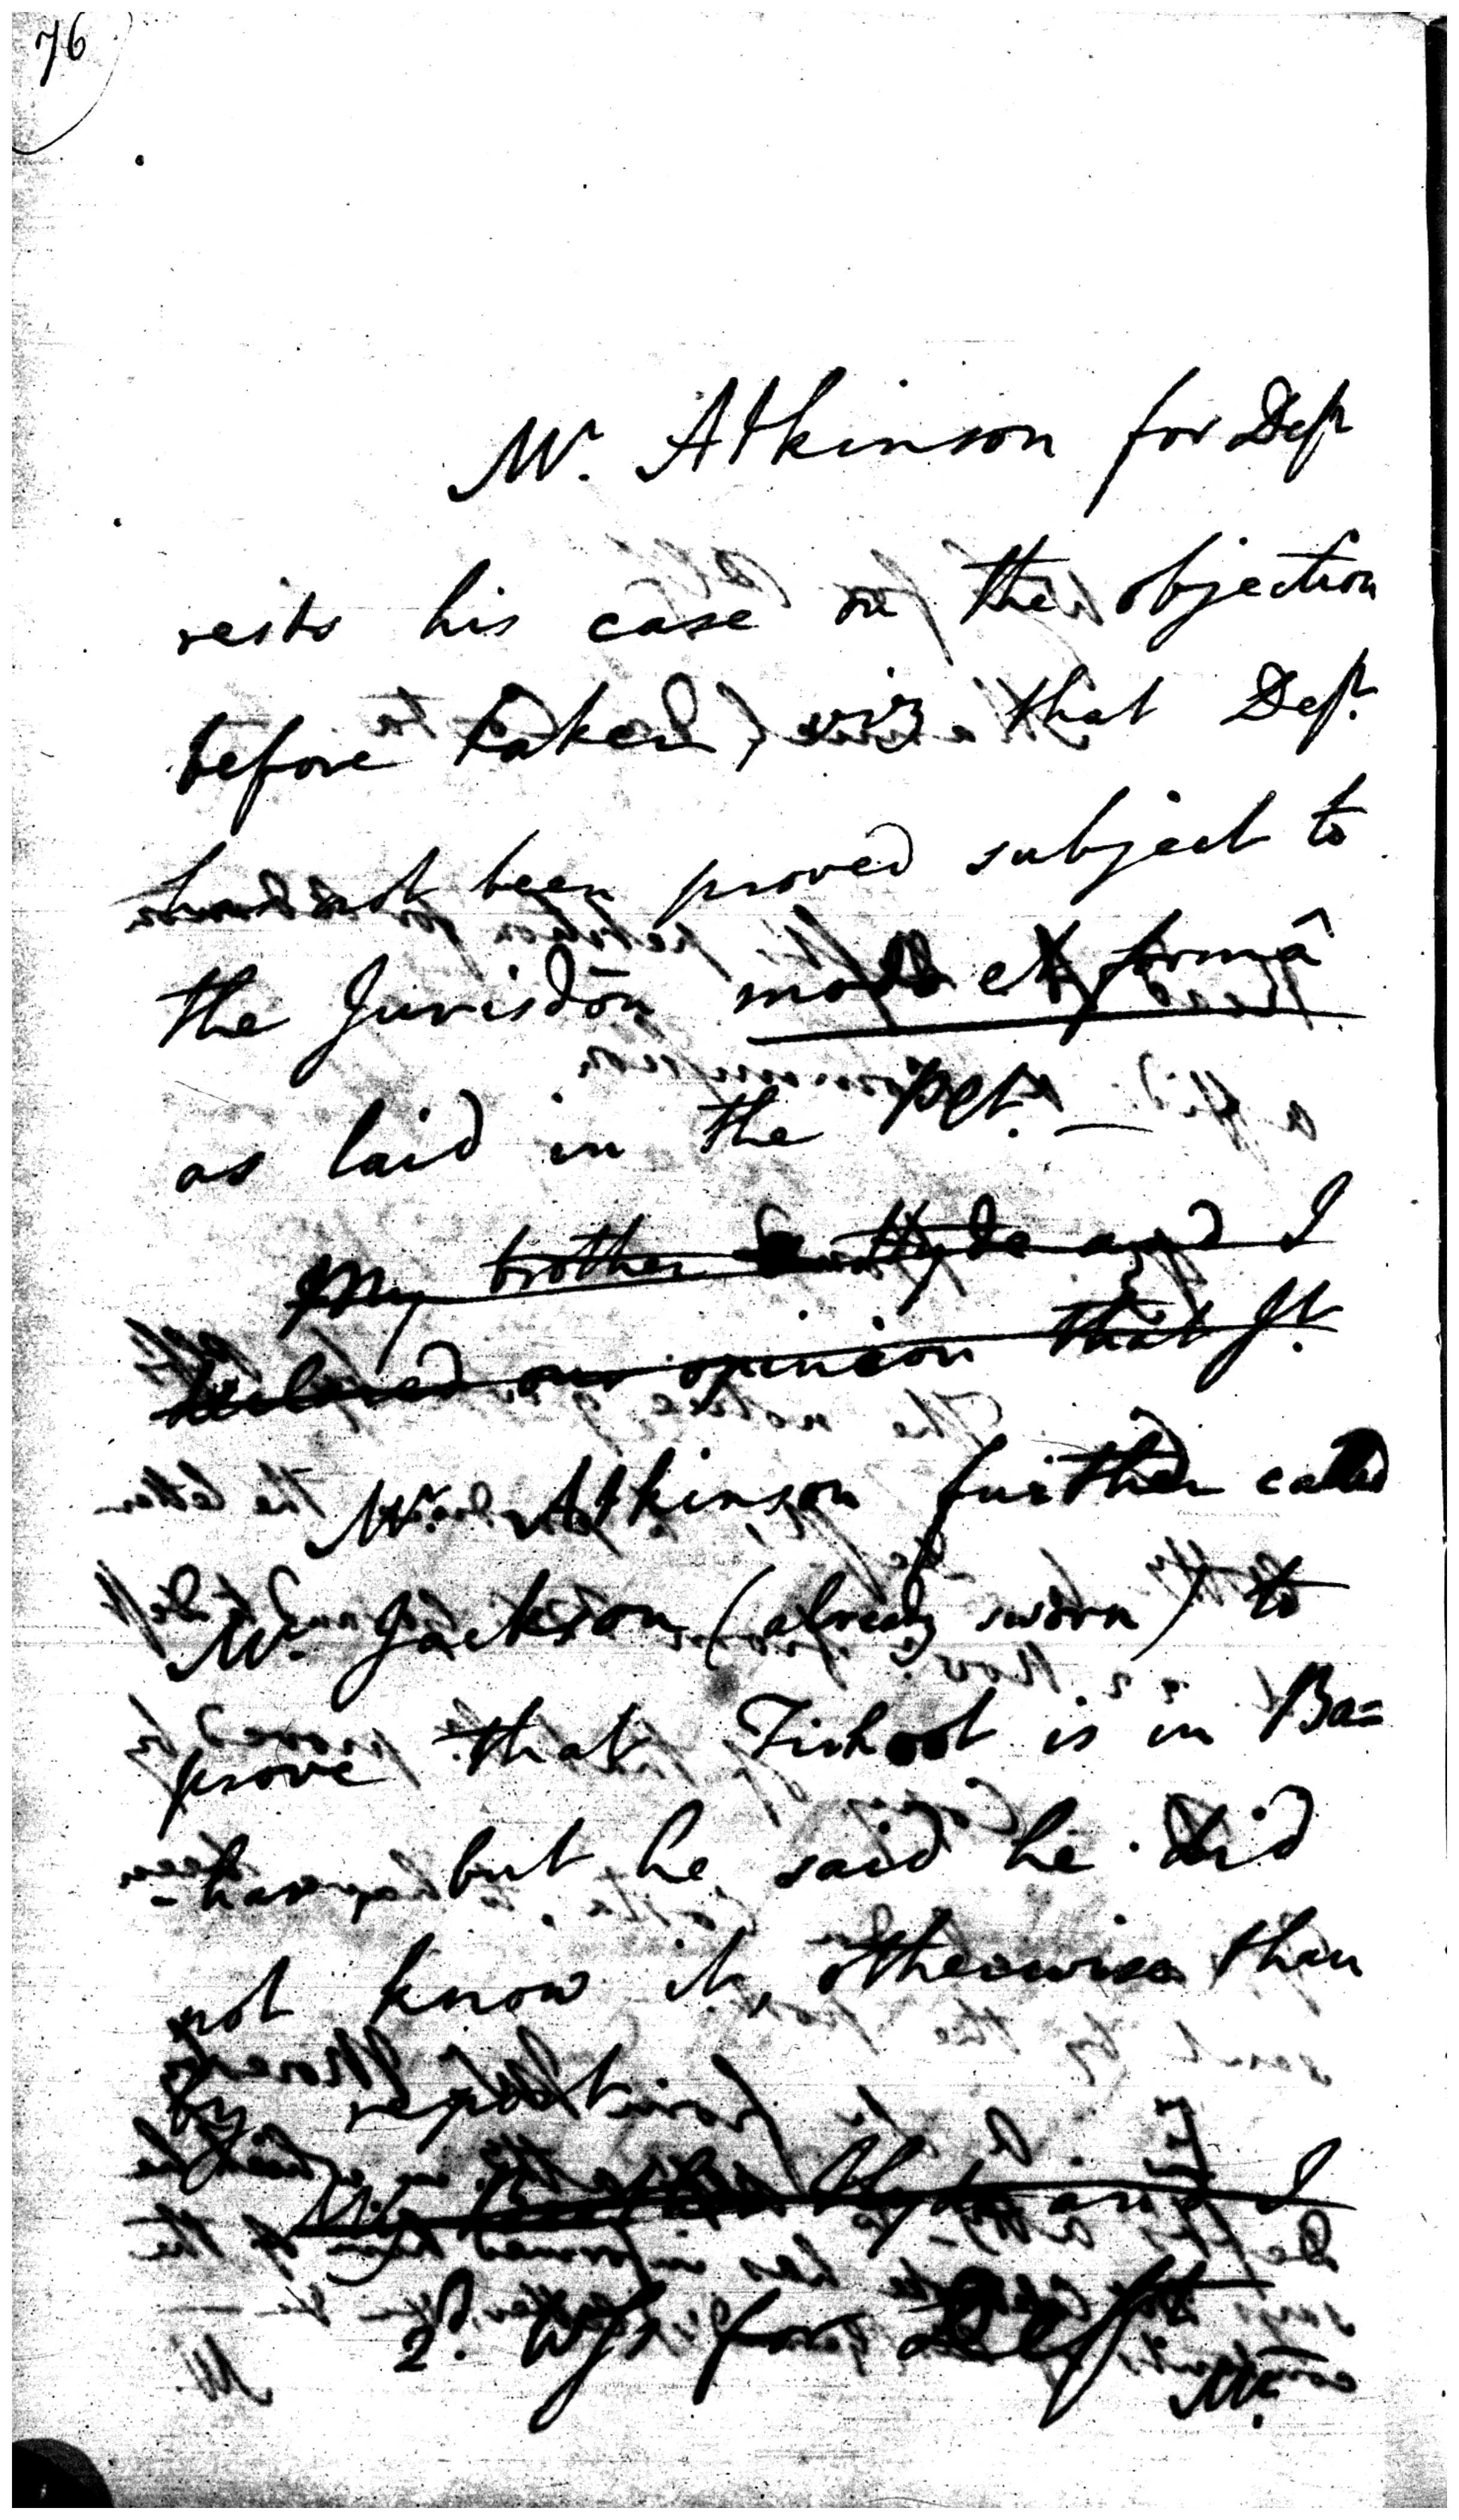 76
Mr. Atkinson for Deft
rests his case on the objection
before taken, viz that Deft.
has not been proved subject to
the Jurisdōn modo et formâ
as laid in the Pet. —
My brother Hyde and I
declared our opinion that Jt.
Mr. Atkinson further called
Mr. Jackson (already sworn) to
prove that is in Ba=
-har but he said he did
not know it, otherwise than
by reputation
My brother Hyde and I
2. Wts for Deft
Mr.